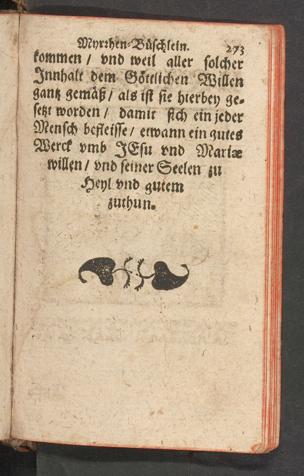 Myrꝛhen-Büschlein. 273
kommen / vnd weil aller solcher
Jnnhalt dem Göttlichen Willen
gantz gemäß / als ist sie hierbey ge-
setzt worden / damit sich ein jeder
Mensch befleisse / etwann ein gutes
Werck vmb JEsu vnd Mariæ
willen / vnd seiner Seelen zu
Heyl vnd gutem
zuthun.